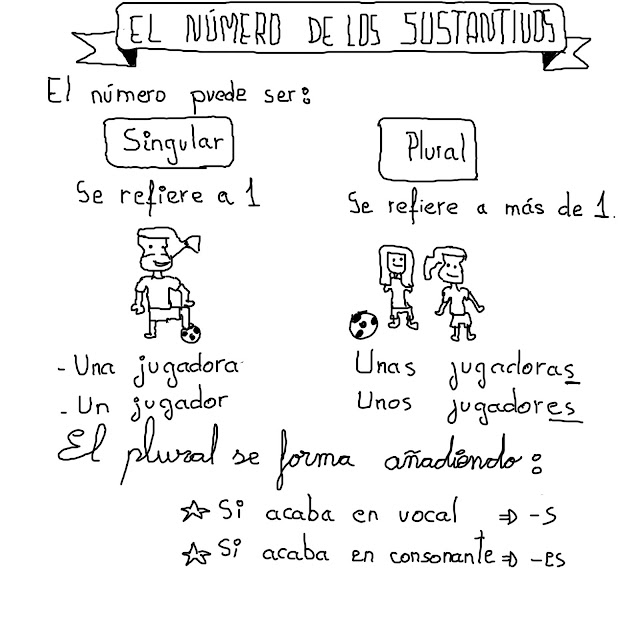 EL NÚMERO DE LOS SUSTANTIVOS
El número puede ser:
Singular
Se refiere a 1
- Una jugadora
- Un jugador
Plural
Se refiere a más de 1.
Unas jugadoras
Unos jugadores
El plural se forma añadiendo:
☆ Si acaba en vocal ⇒ -s
☆ Si acaba en consonante ⇒ -es